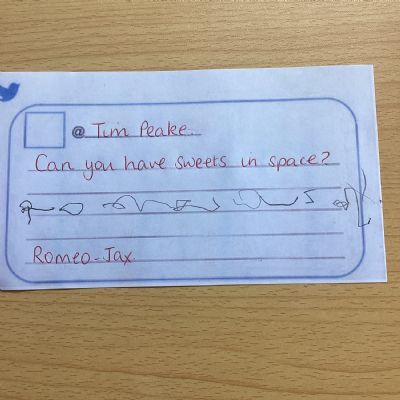 @ Tim Peake.
Can you have sweets in space?
Romeo-Jax.